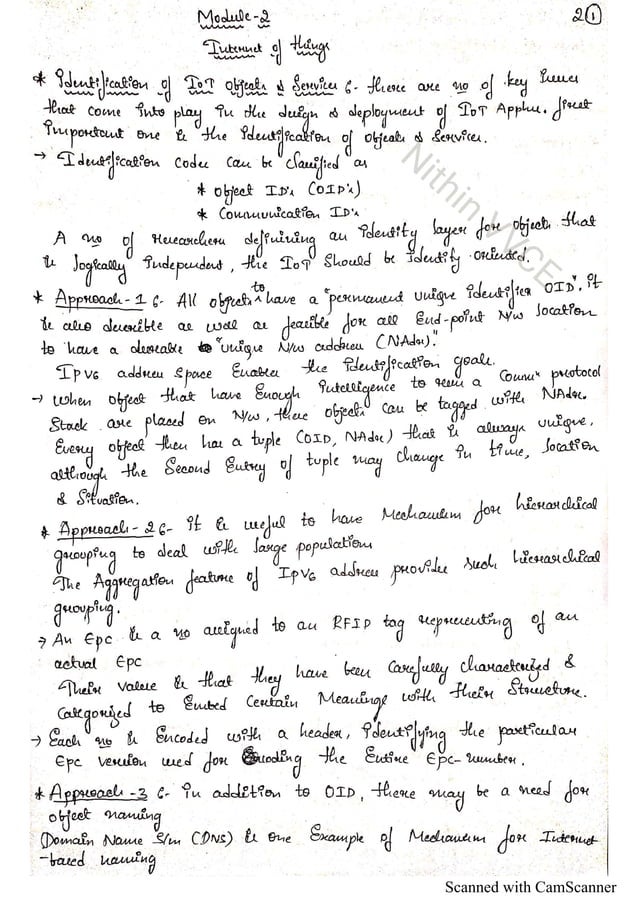 Module-2
2①
Internet of things
* Identification of IoT objects & Services :- there are no of key Issues
that come into play in the design & deployment of IoT Appln. first
Important one is the Identification of objects & Services.
→ Identification codes can be classified as
* object ID's (OID's)
* Communication ID's
A no of researchers definining an identity layer for objects that
is logically Independent, the IoT should be identify oriented.
* Approach-1 :- All objects to have a "permanent unique identifier OID". it
is also desirable as well as feasible for all End-point N/w location
to have a desirable "unique N/w address (NAdr)."
IPV6 address space Enables the identification goals.
→ when object that have Enough intelligence to run a Commn protocol
Stack are placed on N/w, these objects can be tagged with NAdr.
Every object then has a tuple (OID, NAdr) that is always unique,
although the Second Entry of tuple may change in time, location
& Situation.
* Approach-2 :- it is useful to have Mechanism for hierarchical
grouping to deal with large population
The Aggregation feature of IPv6 address provides such hierarchical
grouping.
→ An Epc is a no assigned to an RFID tag representing of an
actual Epc
Their value is that they have been Carefully characterized &
Categorized to Embed Certain Meanings with their Structure.
→ Each no is Encoded with a header, identifying the particular
Epc version used for Encoding the Entire Epc-number.
* Approach-3 :- in addition to OID, there may be a need for
object naming
(Domain Name S/m (DNS) is one Example of Mechanism for Internet
-based naming
Nithin VVCE
Scanned with CamScanner